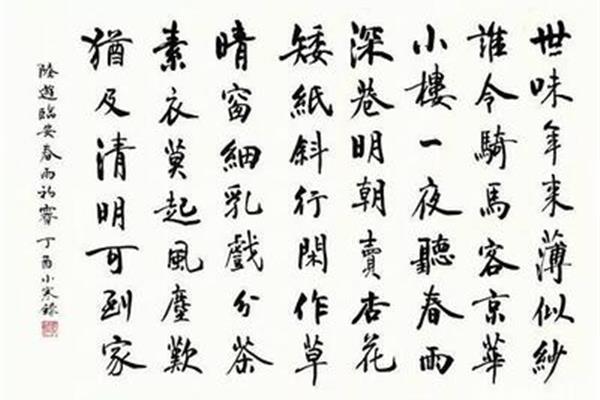 世味年来薄似紗
誰令騎馬客京華
小樓一夜聽春雨
深巷明朝賣杏花
矮紙斜行閑作草
晴窗細乳戲分茶
素衣莫起風塵歎
猶及清明可到家
陸遊臨安春雨初霽 丁酉小寒錄